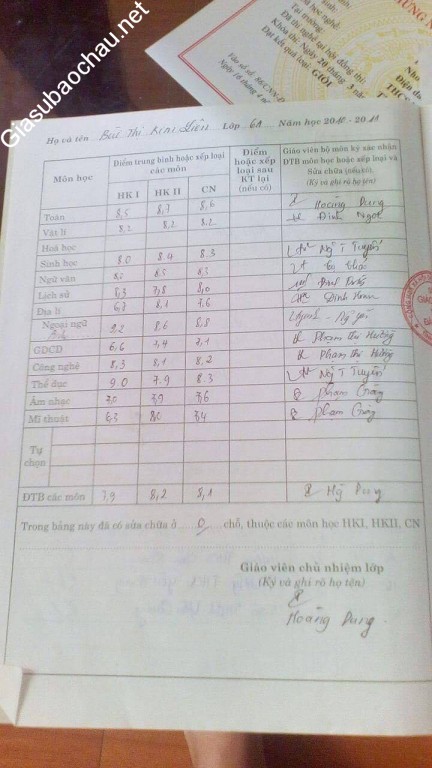 Giasubaochau.net
Khóa thi: Ngày 20 tháng 3
Đạt kết quả loại: GIỎI
Họ và tên Bùi Thị Kim Liên Lớp 6A Năm học 2010 - 2011
Môn học Điểm trung bình hoặc xếp loại các môn Điểm hoặc xếp loại sau KT lại (nếu có) Giáo viên bộ môn ký xác nhận ĐTB môn học hoặc xếp loại và Sửa chữa (nếu có). (Ký và ghi rõ họ tên)
HK I HK II CN
Toán 8,5 8,7 8,6 Hoàng Dung
Vật lí 8,2 8,2 8,2 Đinh Ngọc
Hoá học
Sinh học 8.0 8.4 8.3 Ng T Tuyến
Ngữ văn 8,3 8,3
Lịch sử 8,3 7,8 8,0
Địa lí 6,7 8,1 7,6 Đinh
Ngoại ngữ 9,2 8,6 8,8
GDCD 6,6 7,4 7,1 Phạm Thị Hường
Công nghệ 8,3 8,1 8,2 Phạm Thị Hường
Thể dục 9.0 7.9 8.3 Ng T Tuyến
Âm nhạc 7,0 7,9 7,6 Phạm Giang
Mĩ thuật 6,3 8,0 7,4 Phạm Giang
Tự chọn
ĐTB các môn 7,9 8,2 8,1 Dung
Trong bảng này đã có sửa chữa ở 0 chỗ, thuộc các môn học HKI, HKII, CN
Giáo viên chủ nhiệm lớp
(Ký và ghi rõ họ tên)
Hoàng Dung